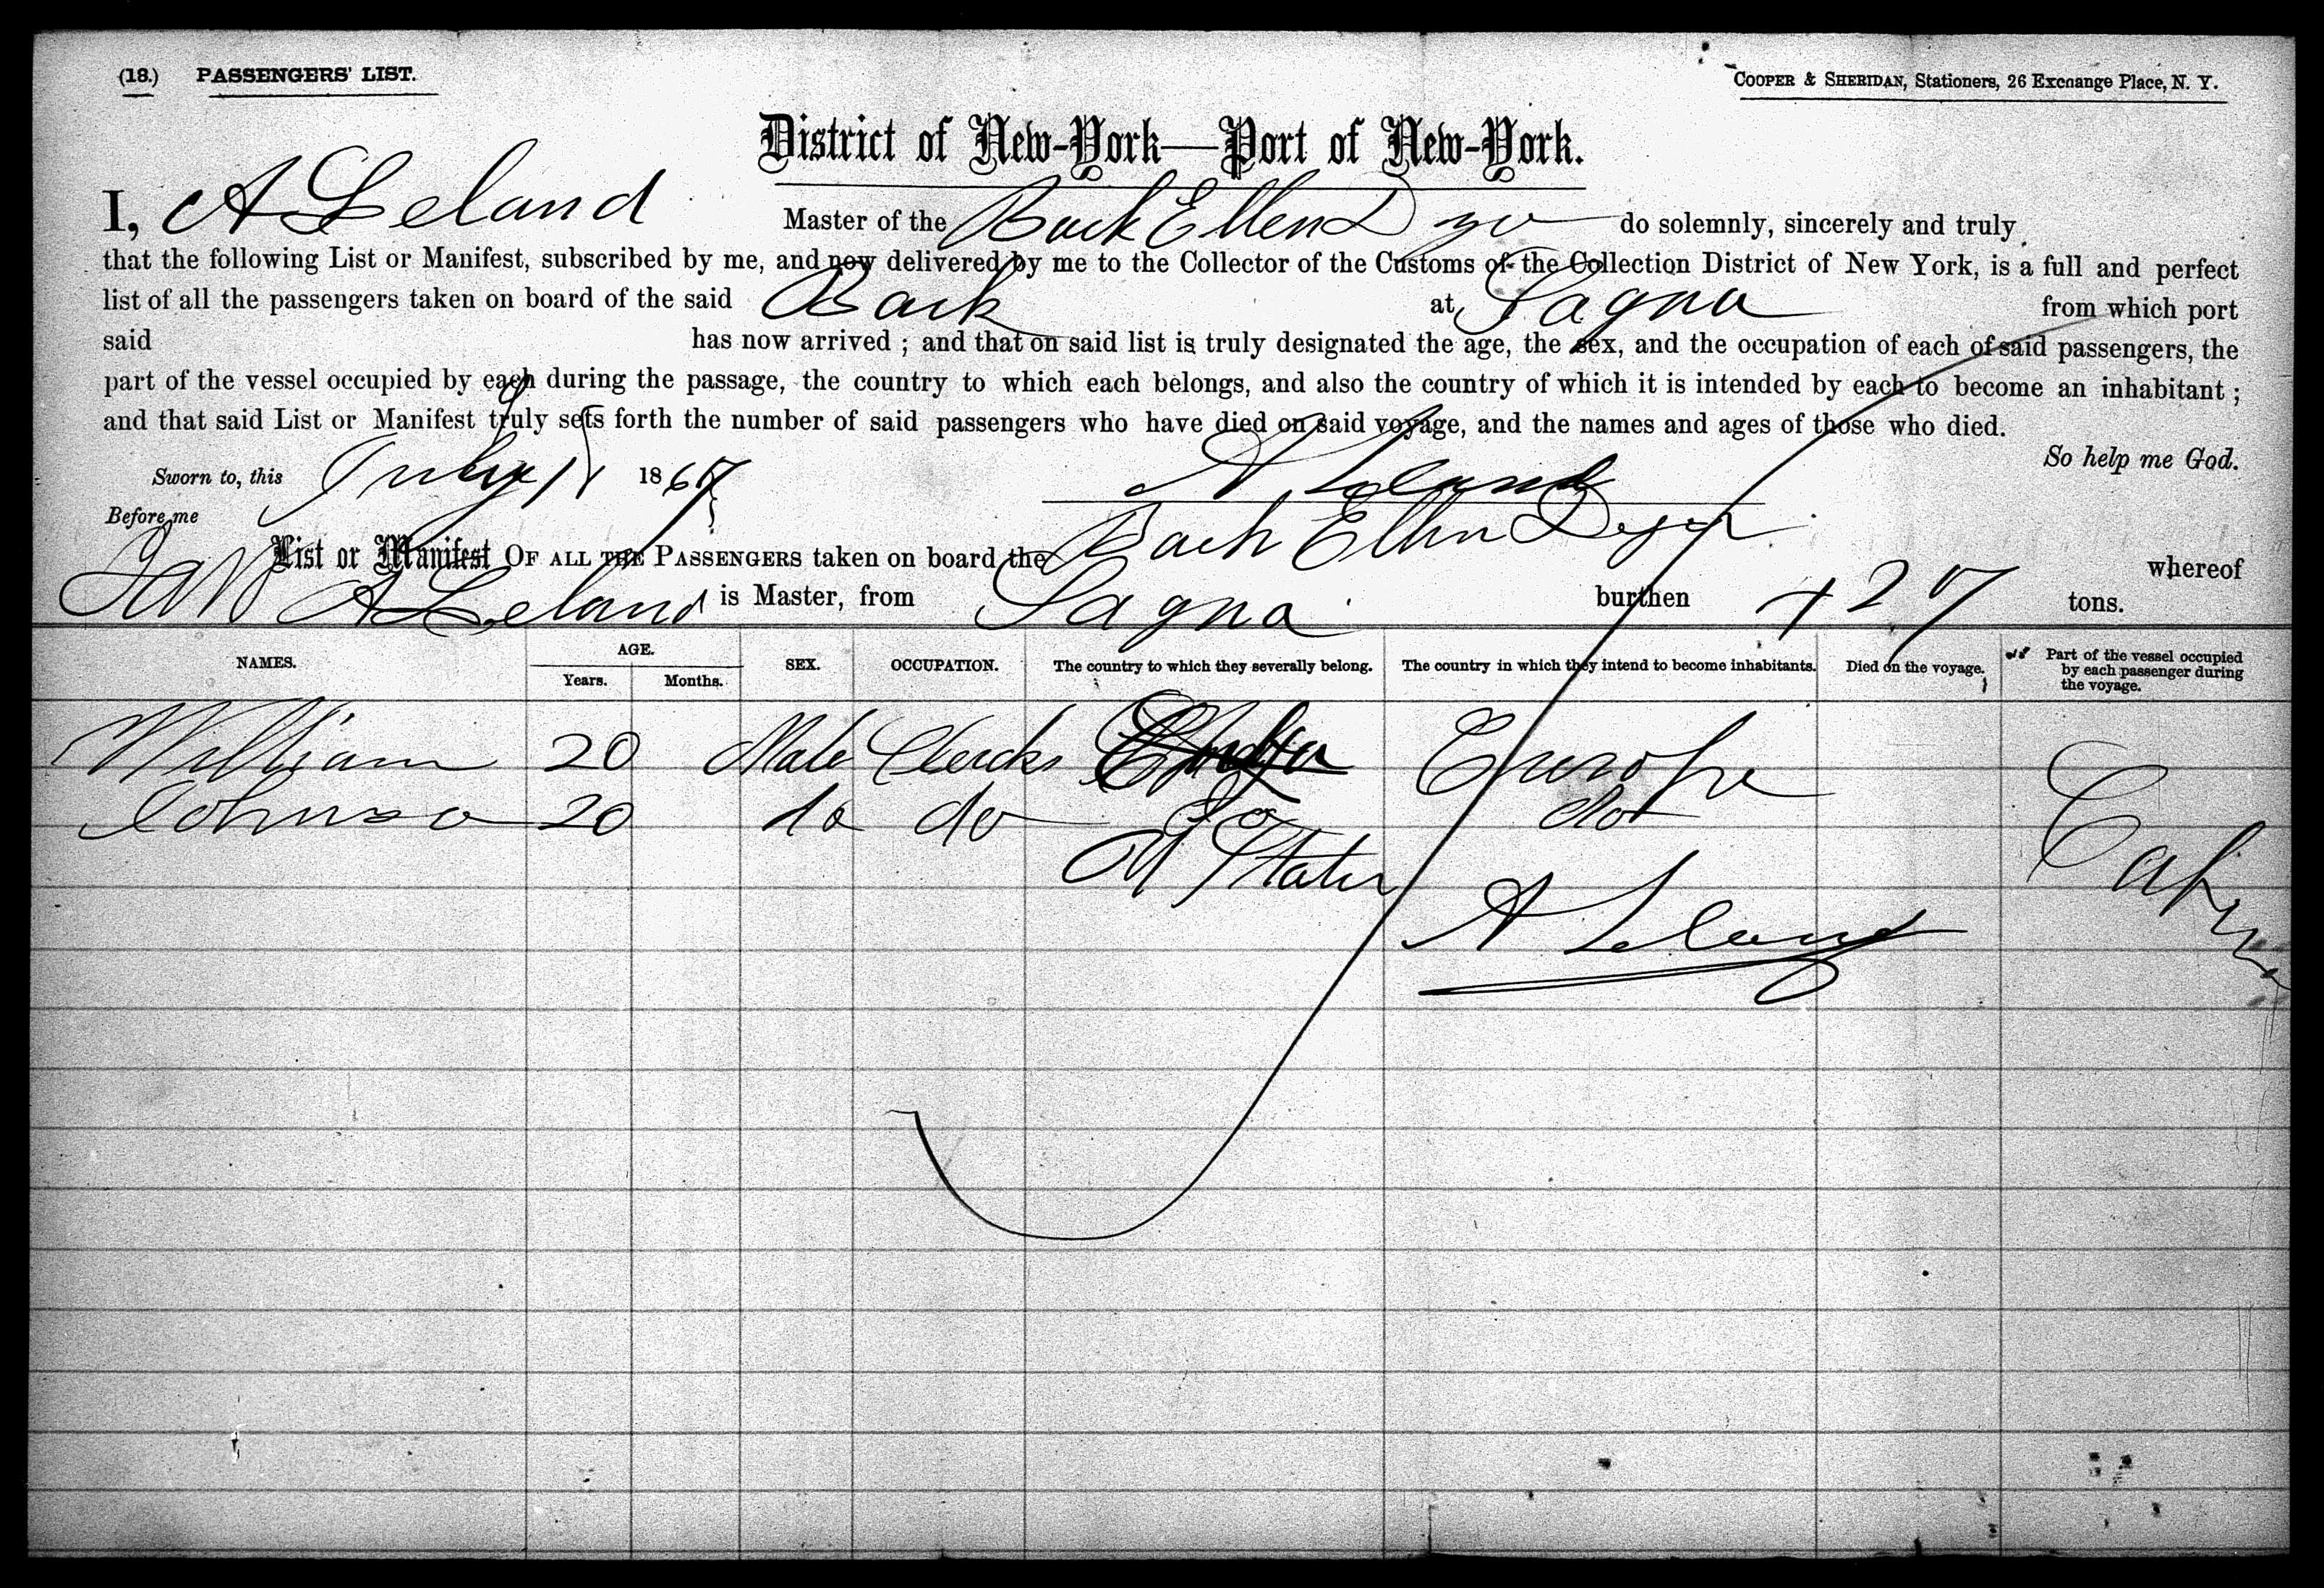 (18.) PASSENGERS' LIST.
COOPER & SHERIDAN, Stationers, 26 Exchange Place, N. Y.
District of New-York—Port of New-York.
I, A Leland Master of the Bark Ellen D do solemnly, sincerely and truly
that the following List or Manifest, subscribed by me, and now delivered by me to the Collector of the Customs of the Collection District of New York, is a full and perfect
list of all the passengers taken on board of the said Bark at Sagua from which port
said has now arrived ; and that on said list is truly designated the age, the sex, and the occupation of each of said passengers, the
part of the vessel occupied by each during the passage, the country to which each belongs, and also the country of which it is intended by each to become an inhabitant ;
and that said List or Manifest truly sets forth the number of said passengers who have died on said voyage, and the names and ages of those who died.
So help me God.
Sworn to, this July 18 1867
A Leland
Before me
List or Manifest OF ALL THE PASSENGERS taken on board the Bark Ellen whereof
A Leland is Master, from Sagua burthen 427 tons.
NAMES. AGE. Years. Months. SEX. OCCUPATION. The country to which they severally belong. The country in which they intend to become inhabitants. Died on the voyage. Part of the vessel occupied by each passenger during the voyage.
William 20 Male Clerks Europe
20 do do do
U States
Cabin
A Leland